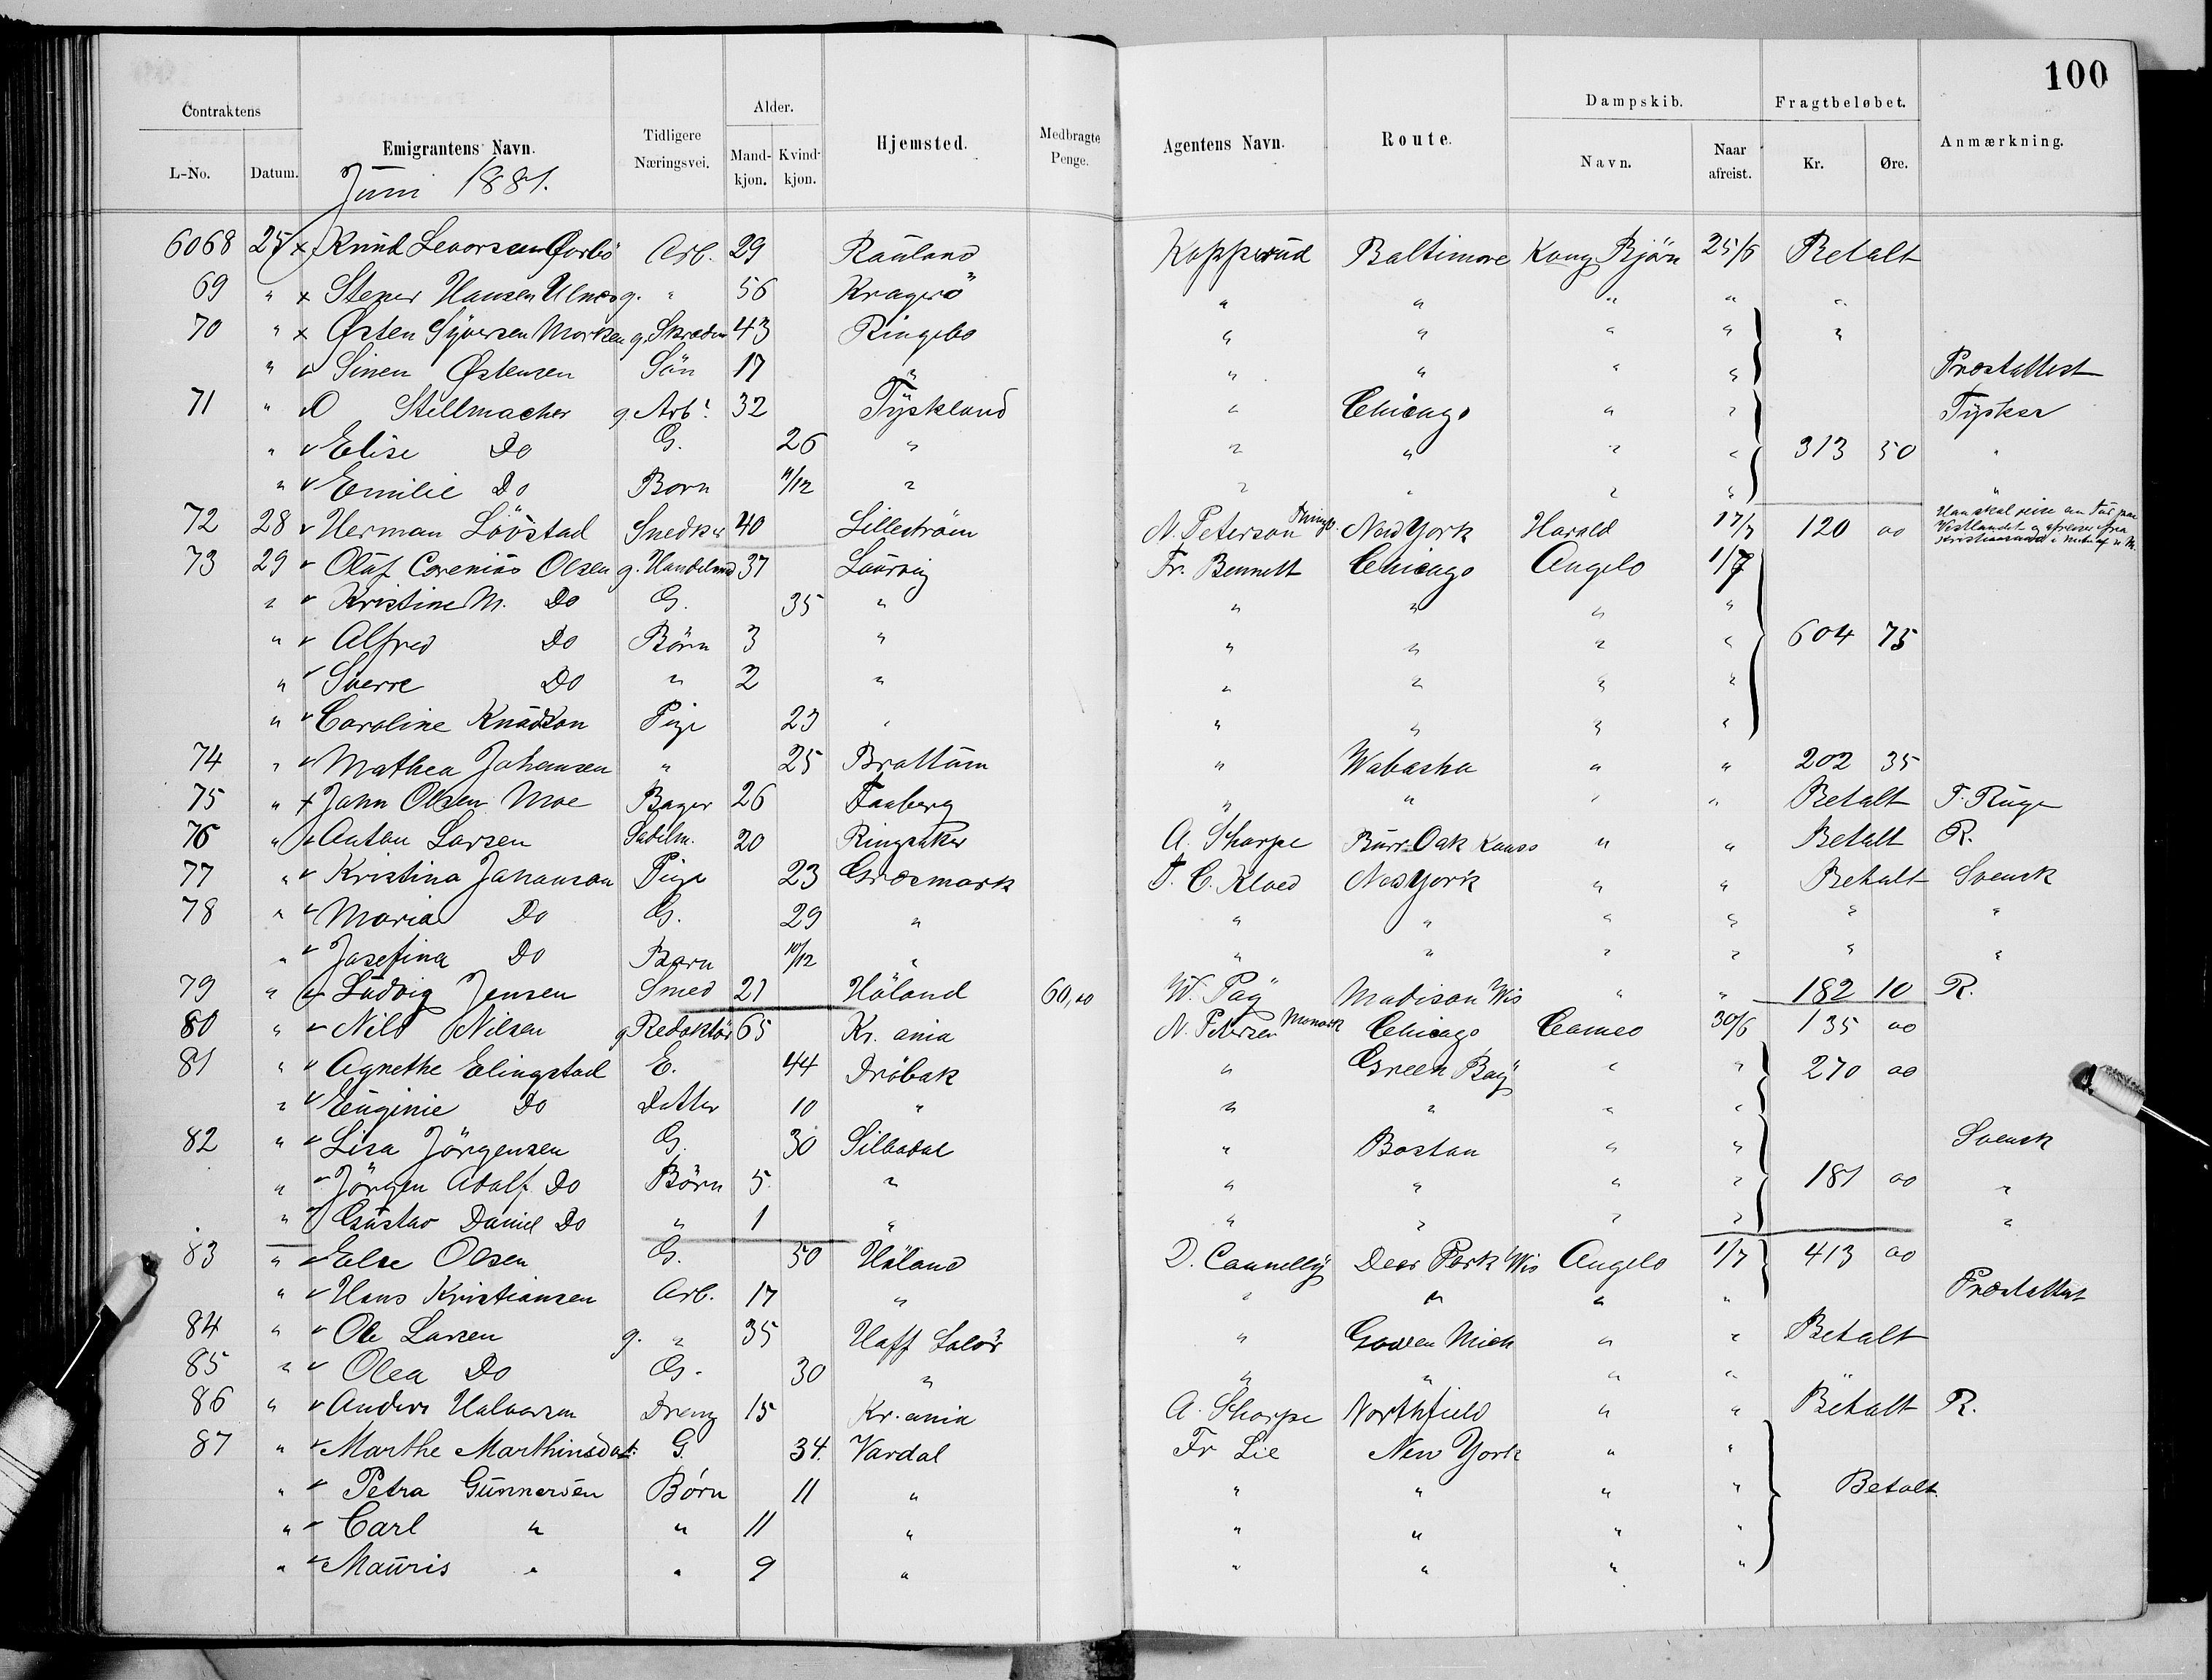 100
Contraktens Emigrantens Navn. Tidligere Næringsvei. Alder. Hjemsted. Medbragte Penge. Agentens Navn. Route. Dampskib. Fragtbeløbet. Anmærkning.
L-No. Datum. Mandkjøn. Kvindkjøn. Navn. Naar afreist. Kr. Øre.
Juni 1881.
6068 25 x Knud Levorsen Arb. 29 Rauland Kopperud Baltimore Kong Bjørn 25/6 Betalt
69 " x Stener Hansen Ulnes g. " 56 Kragerö " " " " "
70 " x Østen Syversen Morken g. Skræder 43 Ringebo " " " " "
" v Simen Østensen Sön 17 " " " " " Præstattest
71 " v O Stellmacher g. Arb. 32 Tyskland " Chicago " " Tysker
" v Elise Do G. 26 " " " " " 313 50 "
" v Emilie Do Barn 11/12 " " " " " "
72 28 v Herman Lövstad Snedker 40 Lilleström N. Peterson Thingv. New York Harald 17/7 120 00 Han skal reise en Tur paa Vestlandet og afreiser fra Kristiansund
73 29 v Oluf Corenius Olsen g. Handelsmd 37 Laurvig Fr. Bennett Chicago Angelo 1/7
" v Kristine M. Do G. 35 " " " " "
" v Alfred Do Börn 3 " " " " " 604 75
" v Sverre Do " 2 " " " " "
" v Caroline Knudson Pige 23 " " " " "
74 " v Mathea Johansen " 25 Brøttum " Wabasha " " 202 35
75 " x John Olsen Moe Bager 26 Faaberg " " " " Betalt T. Ruge
76 " v Anton Larsen 20 Ringsaker A. Sharpe Burr Oak Kansas " " Betalt R.
77 " v Kristina Johanson Pige 23 Græsmark T. C. Kloed New York " " Betalt Svensk
78 " v Maria Do G. 29 " " " " " " "
" v Josefina Do Barn 10/12 " " " " " " "
79 " v Ludvig Jensen Smed 21 Höland 60,00 W. Pay Madison Wis " " 182 10 R.
80 " v Nils Nilsen g Redaktör 65 Kr.ania N. Petersen Monark Chicago Cameo 30/6 135 00
81 " v Agnethe Elingstad E. 44 Dröbak " Green Bay " " 270 00
" v Euginie Do Datter 10 " " " " "
82 " v Lisa Jörgensen G. 30 Silbodal " Boston " " Svensk
" v Jörgen Adolf Do Börn 5 " " " " " 181 00 "
" v Gustav Daniel Do " 1 " " " " " "
83 " v Else Olsen G. 50 Höland D. Connelly Deer Park Wis Angelo 1/7 413 00
" v Hans Kristiansen Arb. 17 " " " " " Præstattest
84 " v Ole Larsen g. " 35 Hoff Solör " Gowen Mich " " Betalt
85 " v Olea Do G. 30 " " " " " "
86 " v Anders Halvorsen Dreng 15 Kr.ania A. Sharpe Northfield " " Betalt R.
87 " v Marthe Marthinsdat: G. 34. Vardal Fr Lie New York " "
" v Petra Gunnersen Børn 11 " " " " " Betalt.
" v Carl " " 11 " " " " "
" v Mauris " " 9 " " " " "